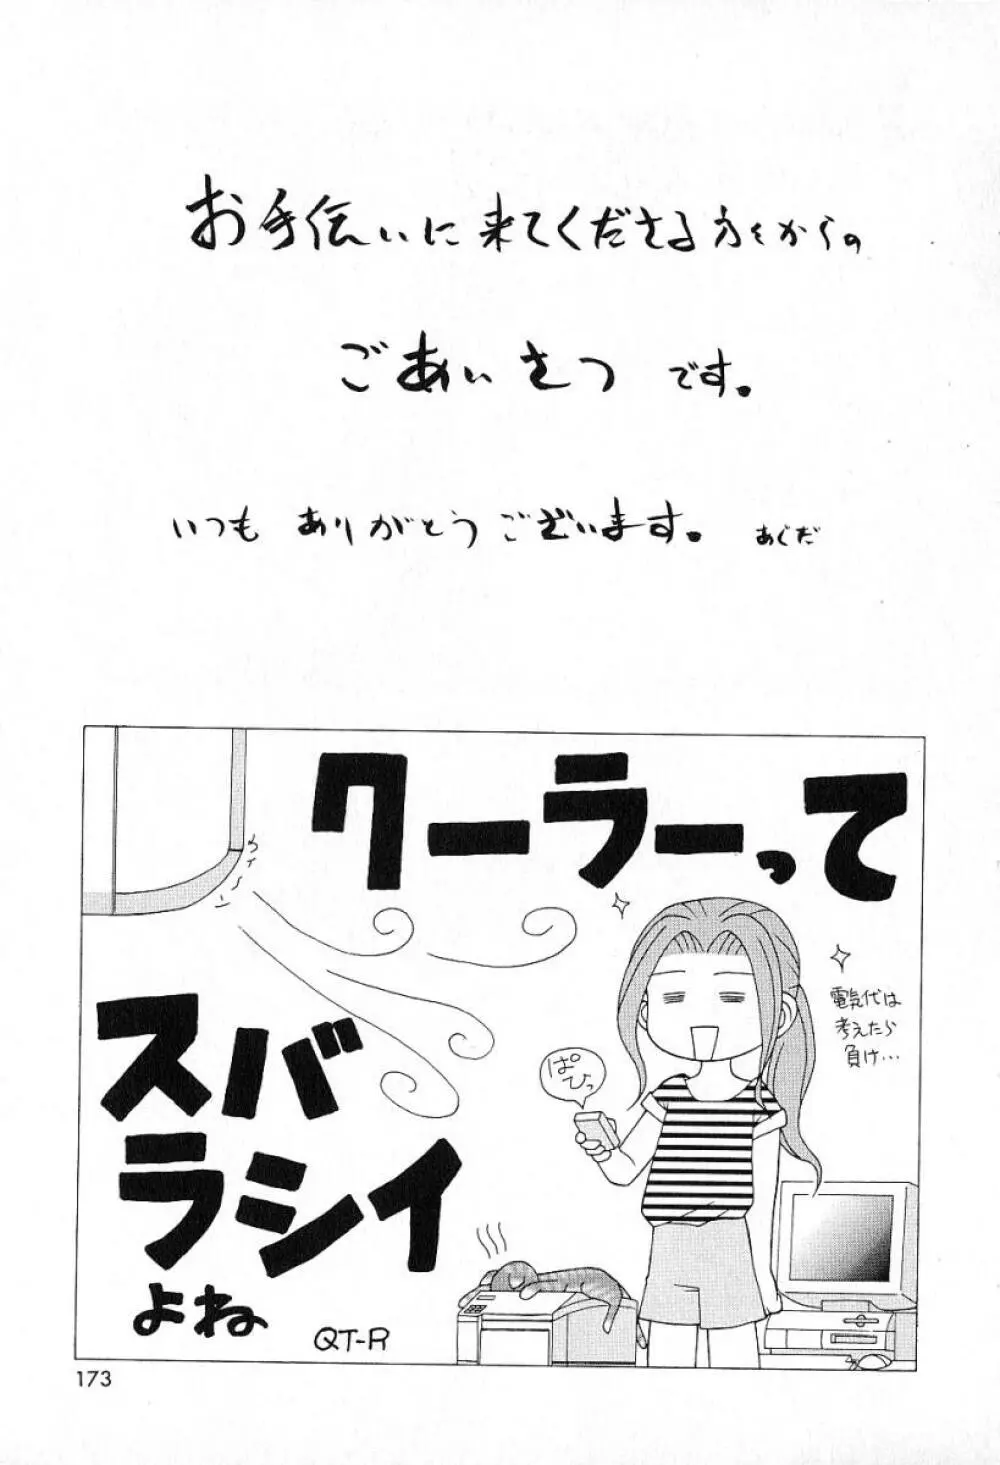 お手伝いに来てくださる方々からの
ごあいさつです。
いつも ありがとうございます。 あぐだ
クーラーって
スバ
ラシイ
よね
ぱぴっ
電気代は
考えたら
負け…
QT-R
173